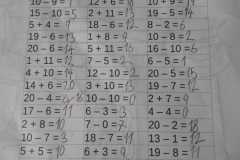 15 − 10 = 5 2 + 11 = 19 − 5 = 14
5 + 4 = 9 18 − 6 = 12 8 − 2 = 6
19 − 6 = 13 1 + 8 = 9 10 + 8 =
20 − 6 = 14 5 + 11 = 16 16 − 10 = 6
1 + 11 = 12 7 − 5 = 2 6 − 5 = 1
4 + 10 = 14 12 − 10 = 2 20 − 5 = 15
14 + 6 = 20 3 + 10 = 13 19 − 7 = 12
20 − 4 = 16 10 − 10 = 0 2 + 7 = 9
17 − 6 = 11 6 − 3 = 3 4 − 4 = 0
2 + 8 = 10 7 − 0 = 7 20 − 2 = 18
10 − 7 = 3 18 − 7 = 11 13 − 1 = 12
5 + 5 = 10 6 + 3 = 9 19 − 8 = 11